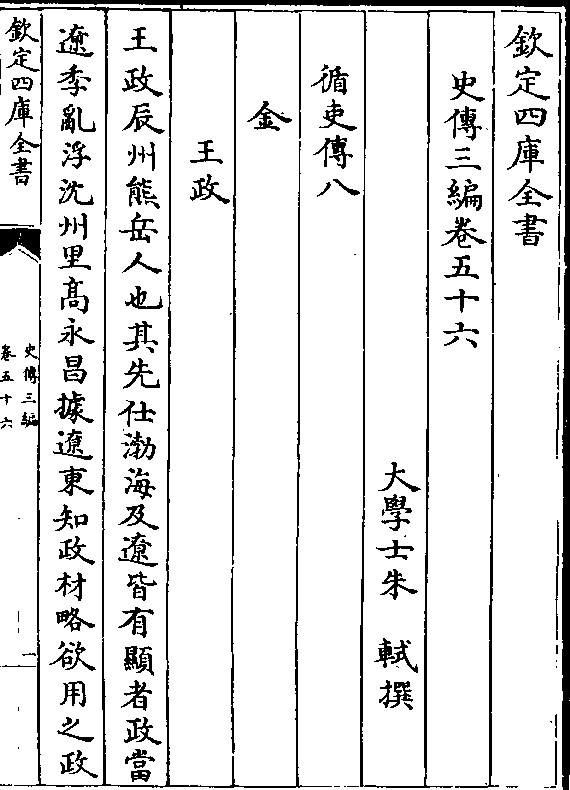 欽定四庫全書
史傳三編卷五十六
大學士朱　軾撰
循吏傳八
金
王政
王政辰州熊岳人也其先仕渤海及遼皆有顯者政當
遼季亂浮沈州里髙永昌據遼東知政材略欲用之政
欽定四庫全書
史傳三編
卷五十六
一